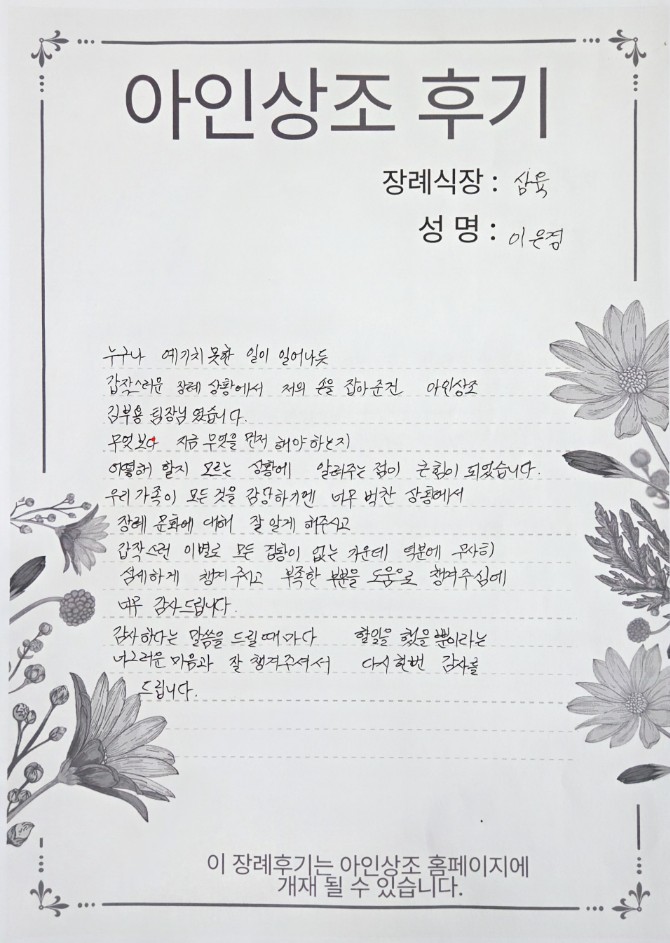 아인상조 후기
장례식장 : 삼육
성 명 : 이은정
누구나 예기치 못한 일이 일어나듯
갑작스러운 장례 상황에서 저의 손을 잡아준건 아인상조
김부용 팀장님 였습니다.
무엇보다 지금 무엇을 먼저 해야 하는지
어떻게 할지 모르는 상황에 알려주는 점이 큰 힘이 되었습니다.
우리 가족이 모든 것을 감당하기엔 너무 벅찬 상황에서
장례 문화에 대해 잘 알게 해주시고
갑작스런 이별로 모든 경황이 없는 가운데 덕분에 무사히
섬세하게 챙겨주시고 부족한 부분을 도움으로 챙겨주심에
너무 감사드립니다.
감사하다는 말씀을 드릴때마다 할일을 했을 뿐이라는
너그러운 마음과 잘 챙겨주셔서 다시한번 감사를
드립니다.
이 장례후기는 아인상조 홈페이지에
개재 될 수 있습니다.